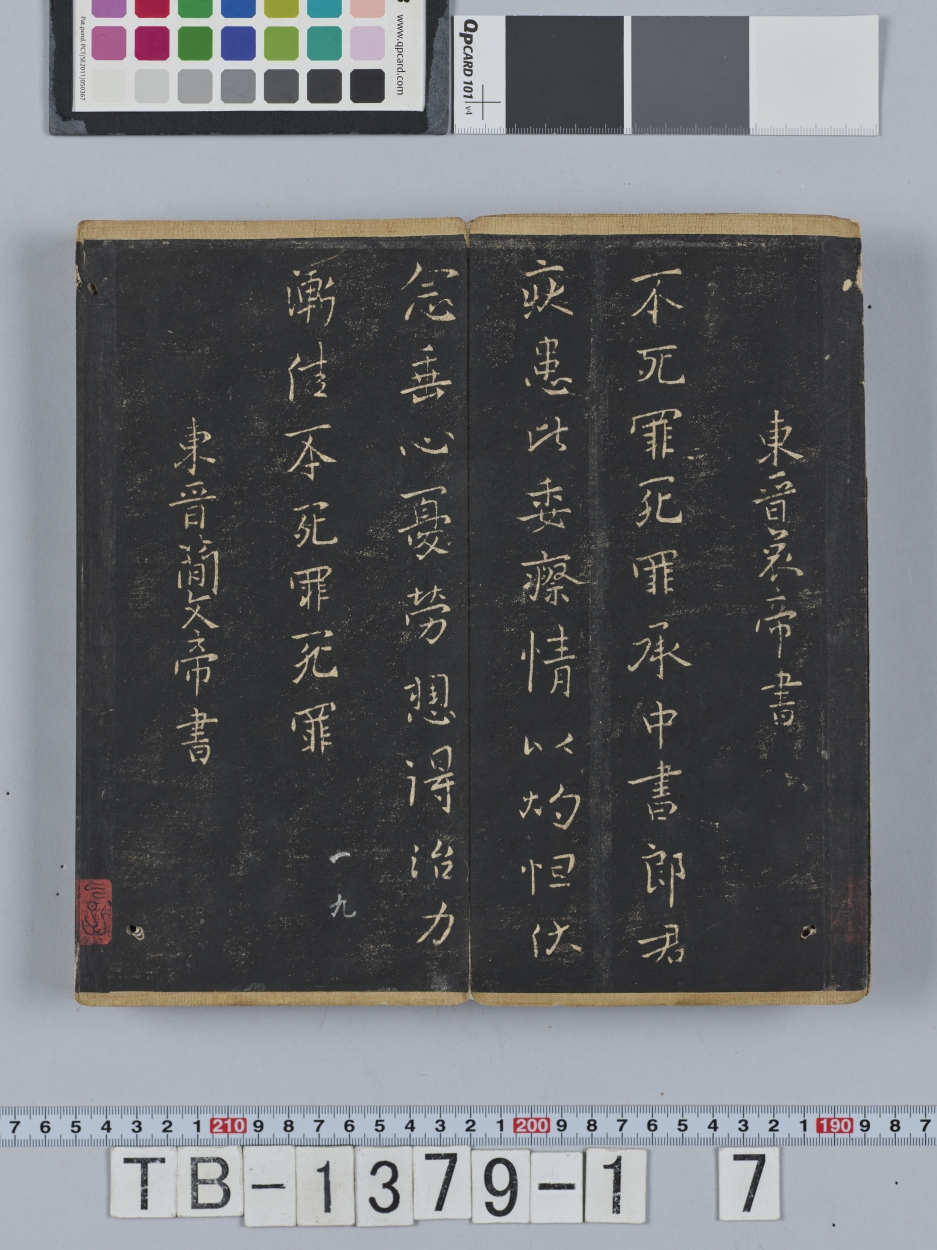 東晉哀帝書
丕死罪死罪承中書郎君
疾患此委瘵情以灼怛伏
念垂心憂勞想得治力
漸佳丕死罪死罪
一九
東晉簡文帝書
www.qpcard.com
Pat.pend. PCT/SE2011/050367
QPCARD 101 v4
7 6 5 4 3 2 1 210 9 8 7 6 5 4 3 2 1 200 9 8 7 6 5 4 3 2 1 190 9 8 7
TB-1379-1 7